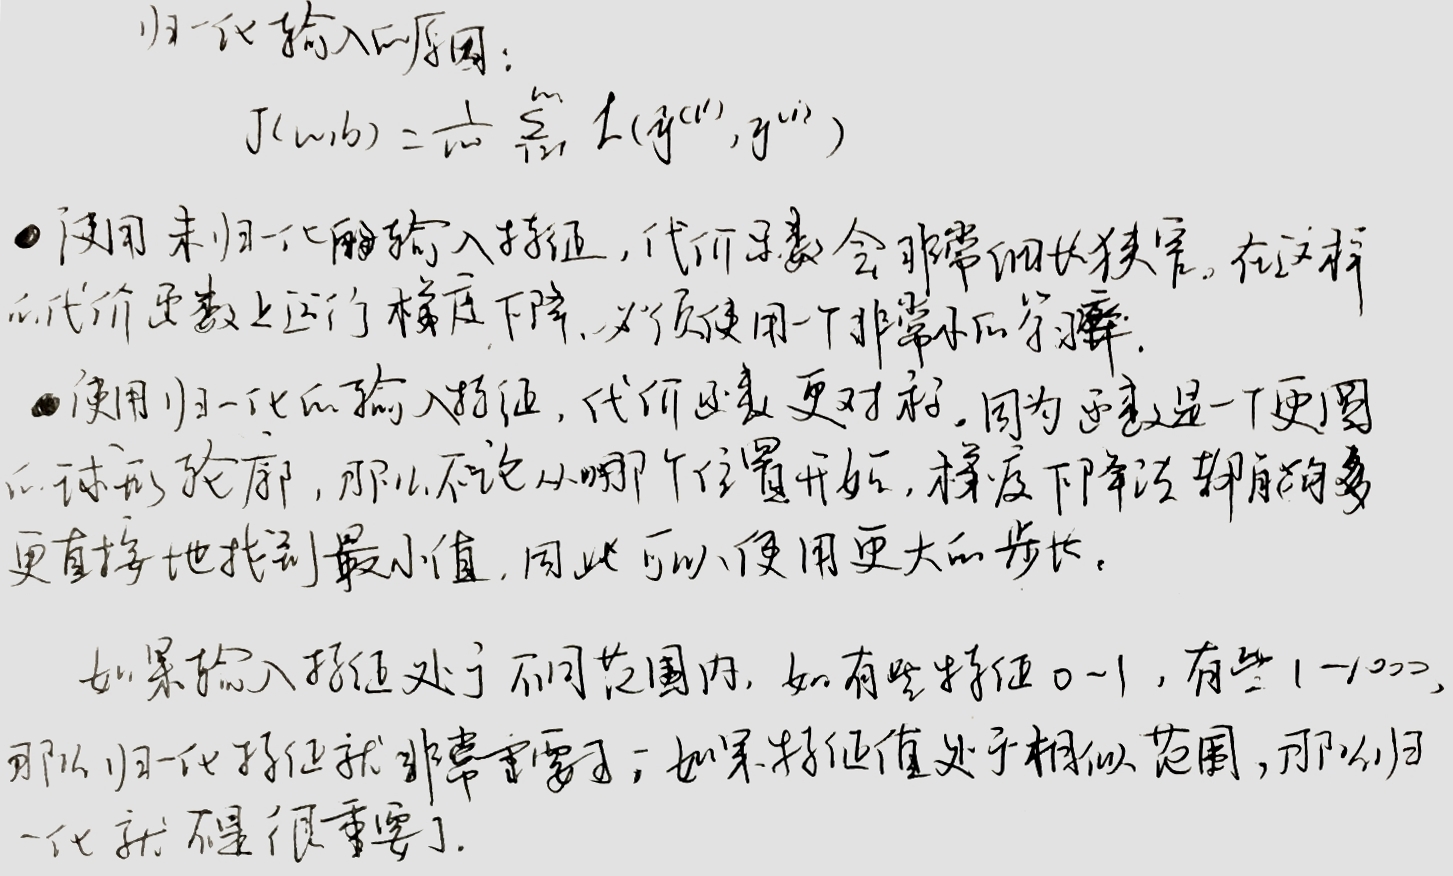 归一化输入的原因:
J(w,b) = 1/m Σ_{i=1}^{m} L(ŷ^{(i)}, y^{(i)})
● 使用未归一化的输入特征,代价函数会非常细长狭窄。在这样
的代价函数上运行梯度下降,必须使用一个非常小的学习率.
● 使用归一化的输入特征,代价函数更对称。因为函数是一个更圆
的球形轮廓,那么不论从哪个位置开始,梯度下降法都能够
更直接地找到最小值,因此可以使用更大的步长。
如果输入特征处于不同范围内,如有些特征0~1,有些1~1000,
那么归一化特征就非常重要了;如果特征值处于相似范围,那么归
一化就不是很重要了.